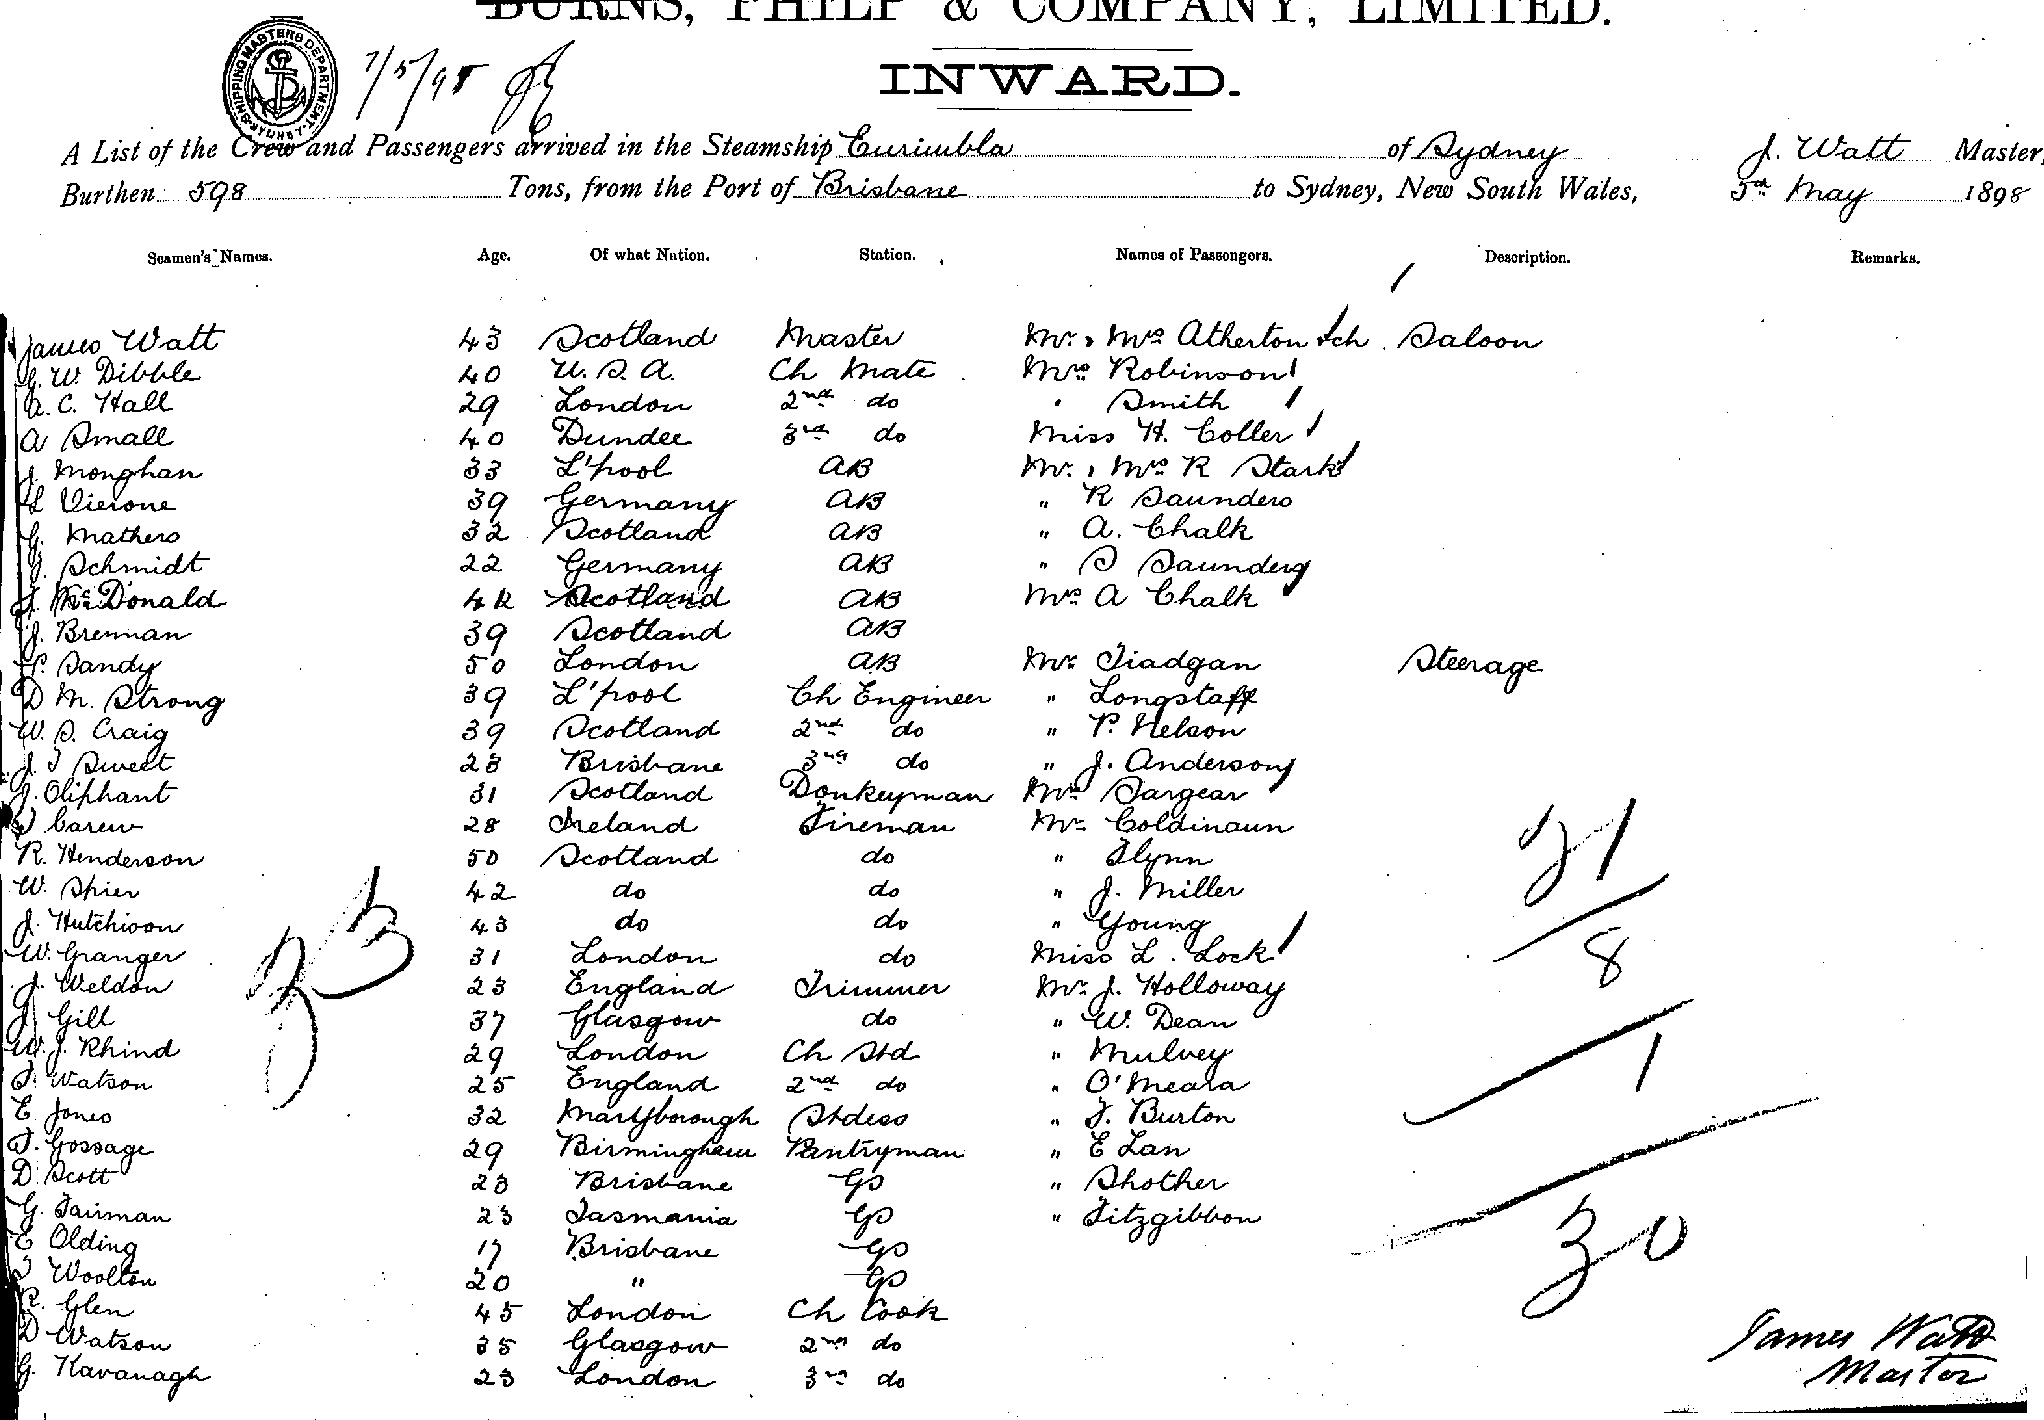 BURNS, PHILP & COMPANY, LIMITED.
SHIPPING MASTERS DEPARTMENT
7/5/98
INWARD.
A List of the Crew and Passengers arrived in the Steamship Eurimbla of Sydney J. Watt Master,
Burthen 598 Tons, from the Port of Brisbane to Sydney, New South Wales, 5th May 1898
Seamen's Names. Age. Of what Nation. Station. Names of Passengers. Description. Remarks.
James Watt 43 Scotland Master Mr. & Mrs Atherton & ch Saloon
W. Dibble 40 U.S.A. Ch Mate Mrs Robinson
A. C. Hall 29 London 2nd do " Smith
A Small 40 Dundee 3rd do Miss H. Coller
J Monghan 33 L'pool AB Mr. & Mrs R Stark
Vierone 39 Germany AB " R Saunders
G. Mathers 32 Scotland AB " A. Chalk
Schmidt 22 Germany AB " S Saunders
J. McDonald Scotland AB Mrs A Chalk
J. Brennan 39 Scotland AB
Sandy 50 London AB Mr Tiadgan Steerage
D M. Strong 39 L'pool Ch Engineer " Longstaff
W. S. Craig 39 Scotland 2nd do " P. Nelson
J. T Sweet 23 Brisbane 3rd do " J. Anderson
J. Oliphant 31 Scotland Donkeyman Mrs Sargear
Carew 28 Ireland Fireman Mr Coldinaun
R. Henderson 50 Scotland do " Flynn
W. Spier 42 do do " J. Miller
J. Hutchison 43 do do " Young
W. Granger 31 London do Miss L. Lock
J. Weldon 23 England Trimmer Mr J. Holloway
J Gill 37 Glasgow do " W. Dean
W. J. Rhind 29 London Ch Std " Mulvey
Watson 25 England 2nd do " O'Meara
E Jones 32 Maryborough Stdess " F. Burton
Gossage 29 Birmingham Pantryman " E Lan
D Scott 23 Brisbane GS " Shother
G. Fairman 23 Tasmania GS " Fitzgibbon
E Olding 17 Brisbane GS
Woolton 20 " GS
R. Glen 45 London Ch Cook
D Watson 35 Glasgow 2nd do
G. Kavanagh 23 London 3rd do
33
21
8
1
30
James Watt
Master